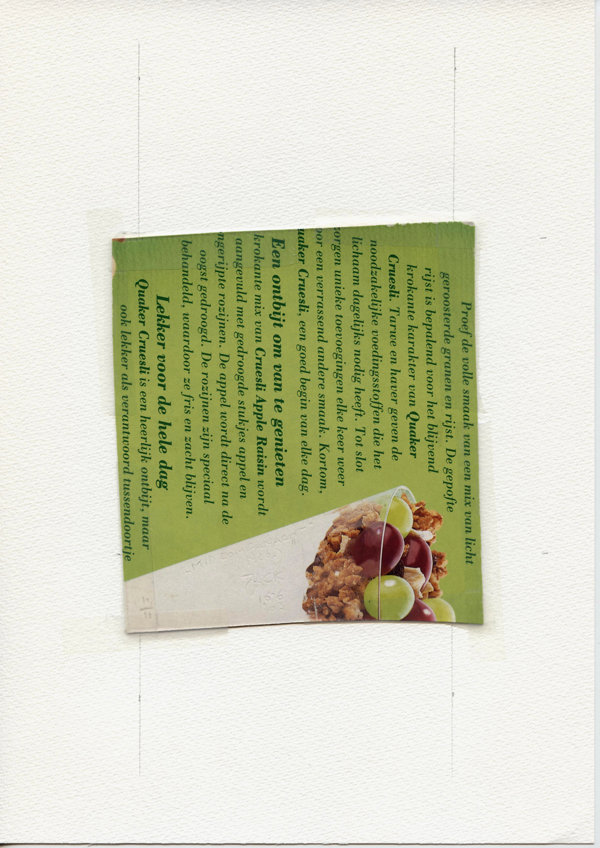 Proef de volle smaak van een mix van licht
geroosterde granen en rijst. De gepofte
rijst is bepalend voor het blijvend
krokante karakter van Quaker
Cruesli. Tarwe en haver geven de
noodzakelijke voedingsstoffen die het
lichaam dagelijks nodig heeft. Tot slot
zorgen unieke toevoegingen elke keer weer
oor een verrassend andere smaak. Kortom,
uaker Cruesli, een goed begin van elke dag.
Een ontbijt om van te genieten
krokante mix van Cruesli Apple Raisin wordt
aangevuld met gedroogde stukjes appel en
ngerijpte rozijnen. De appel wordt direct na de
oogst gedroogd. De rozijnen zijn speciaal
behandeld, waardoor ze fris en zacht blijven.
Lekker voor de hele dag
Quaker Cruesli is een heerlijk ontbijt, maar
ook lekker als verantwoord tussendoortje